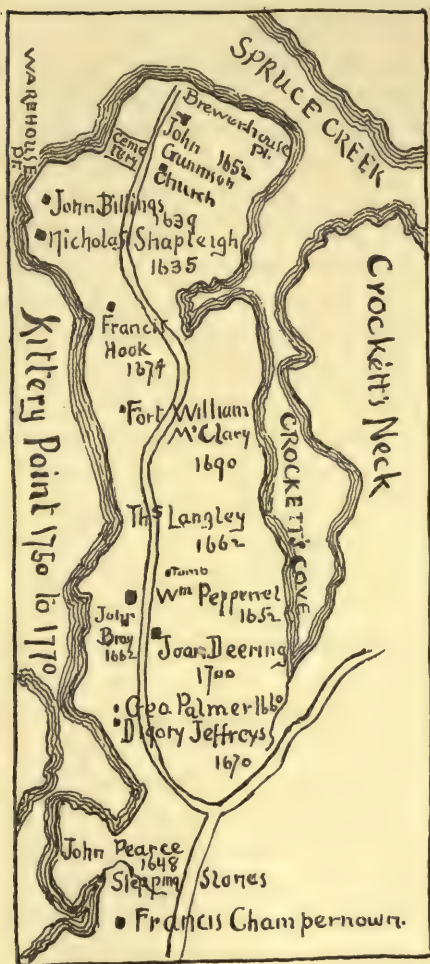 SPRUCE CREEK
WAREHOUSE
Pt.
Brewerhouse
Pt.
John 1652
Gunnison
Church
John Billings
1639
Nicholas Shapleigh
1635
Crockett's Neck
Francis
Hook
1674
Kittery Point 1750 to 1770
Fort William
McClary
1690
CROCKETT'S COVE
Ths Langley
1662
Tomb
Wm Pepperrel
1652
John
Bray
1662
Joan Deering
1700
Geo. Palmer 1660
Digory Jeffreys
1670
John Pearce
1648
Stepping Stones
Francis Champernown.